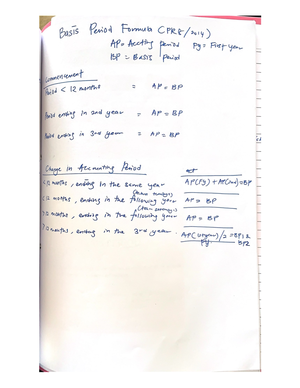 Basis Period Formula (PR8/2014)
AP = Accting period Fy = First year
BP = Basis Period
Commencement
Period < 12 months = AP = BP
Period ending in 2nd year = AP = BP
Period ending in 3rd year = AP = BP
Change in Accounting Period
months, ending in the same year AP(FY) + AP(2nd) = BP
12 months, ending in the following year AP = BP
months, ending in the following year AP = BP
months, ending in the 3rd year. /2 = BP1 &
Fy. BP2